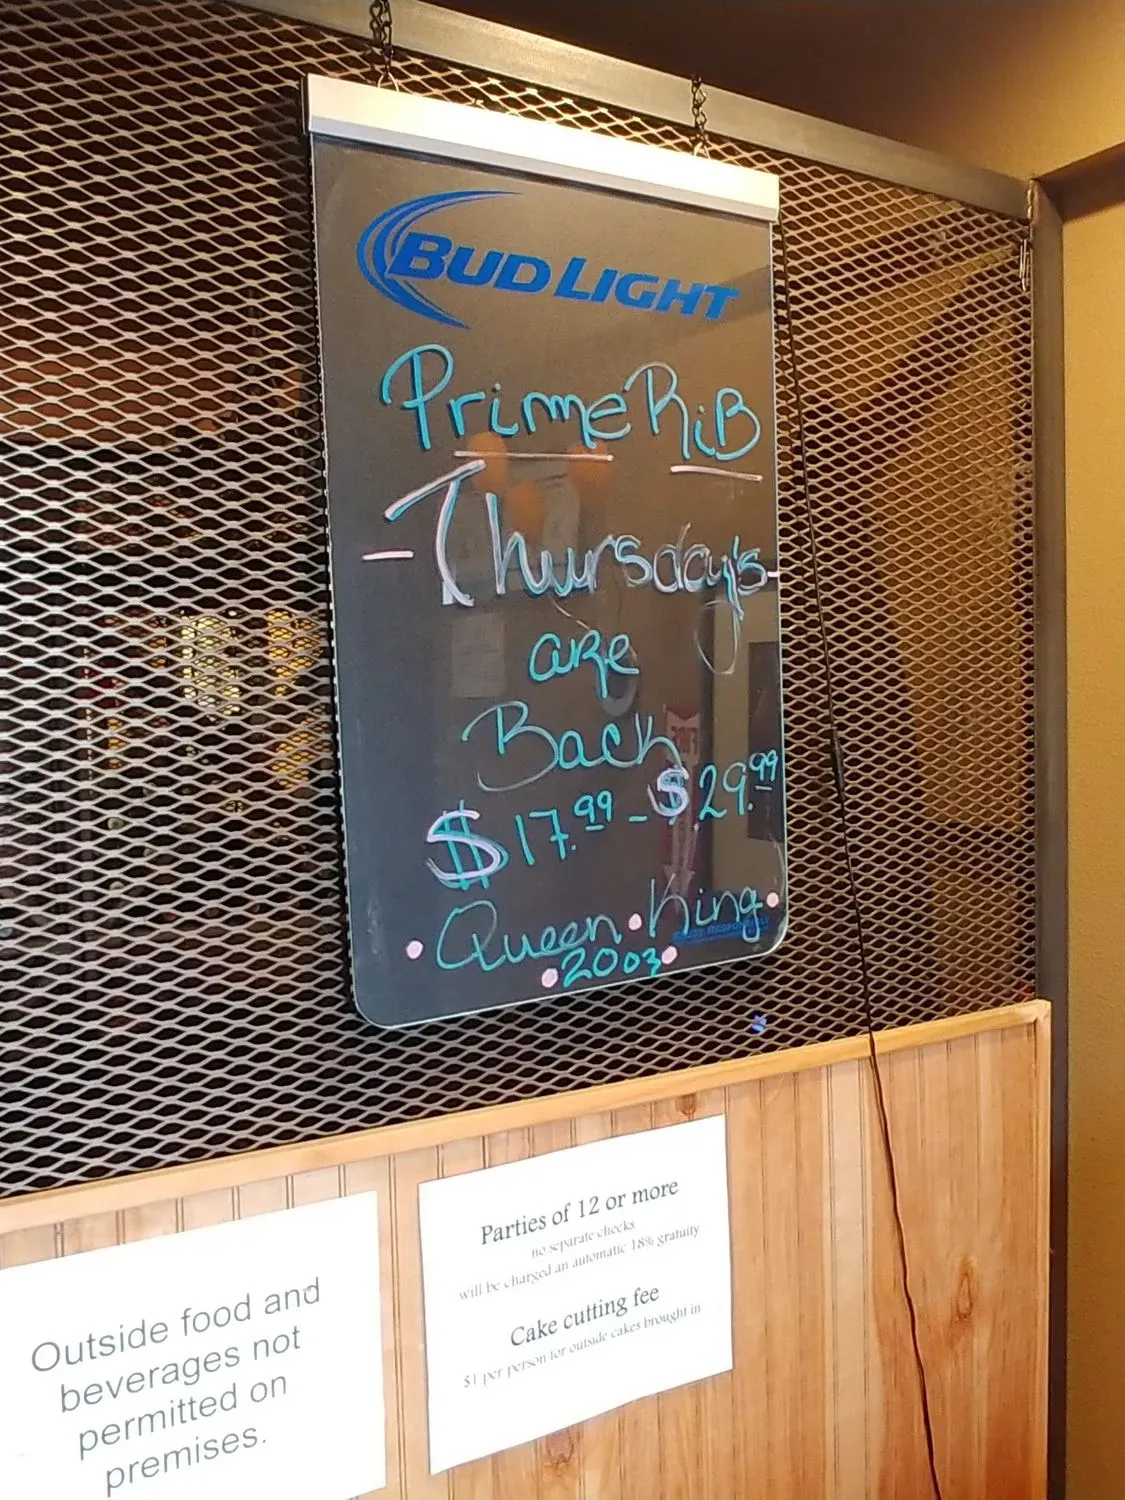 BUD LIGHT
Prime Rib
- Thursday's -
are
Back
$17.99 - $29.99
• Queen • King •
• 2003 •
Outside food and
beverages not
permitted on
premises.
Parties of 12 or more
no separate checks
will be charged an automatic 18% gratuity
Cake cutting fee
$1 per person for outside cakes brought in